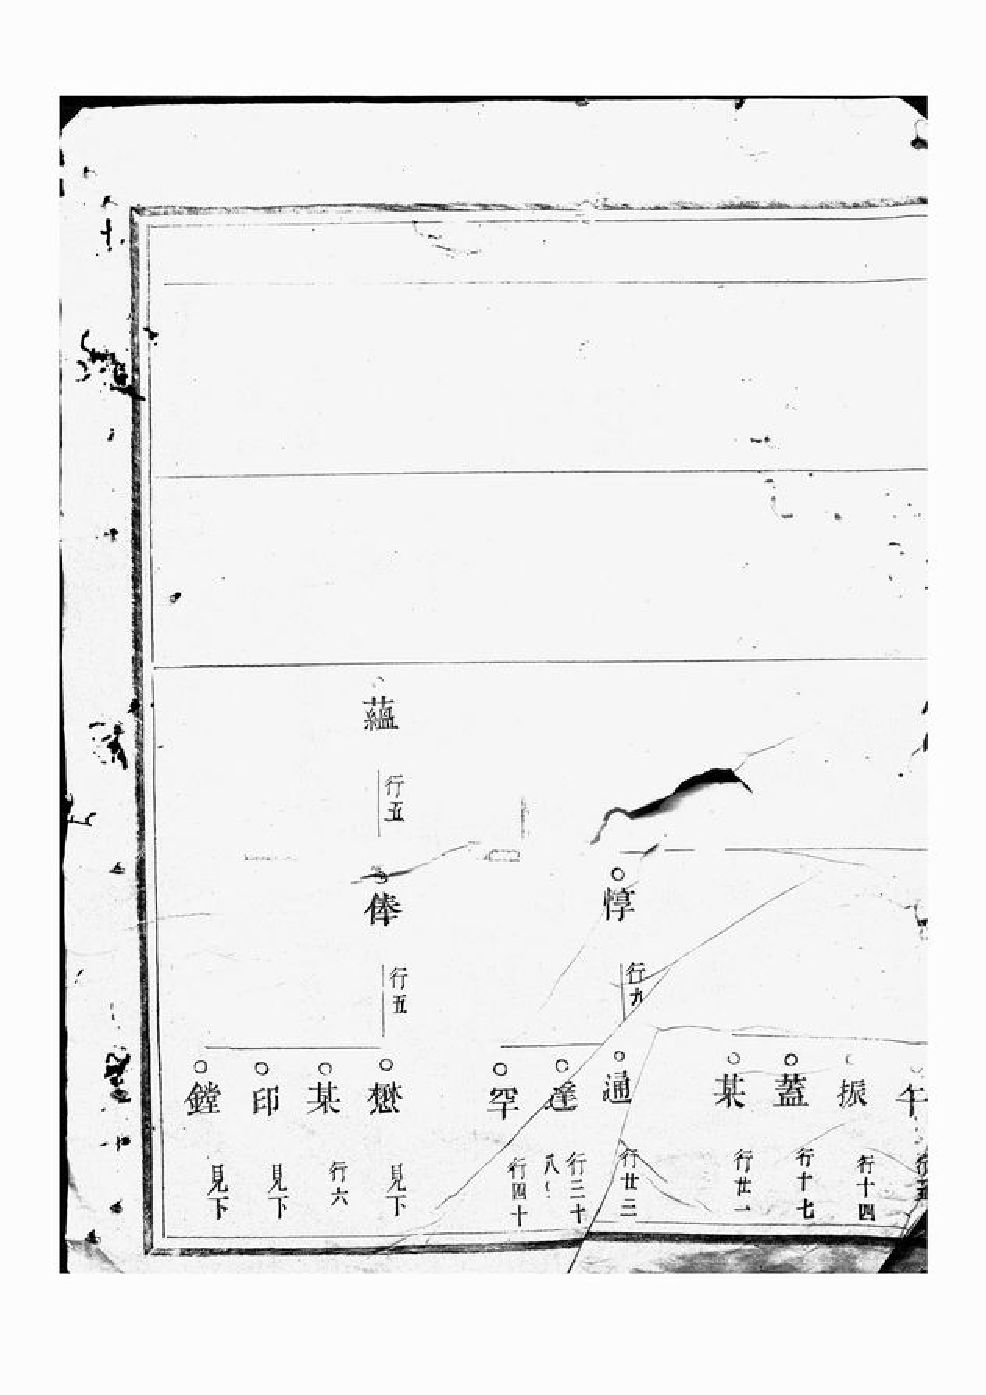 蘊
行五
俸
行五
惇
行九
行五
振
行十四
蓋
行十七
某
行廿一
通
行廿三
達
行三十
罕
行四十
懋
見下
某
行六
印
見下
鏜
見下